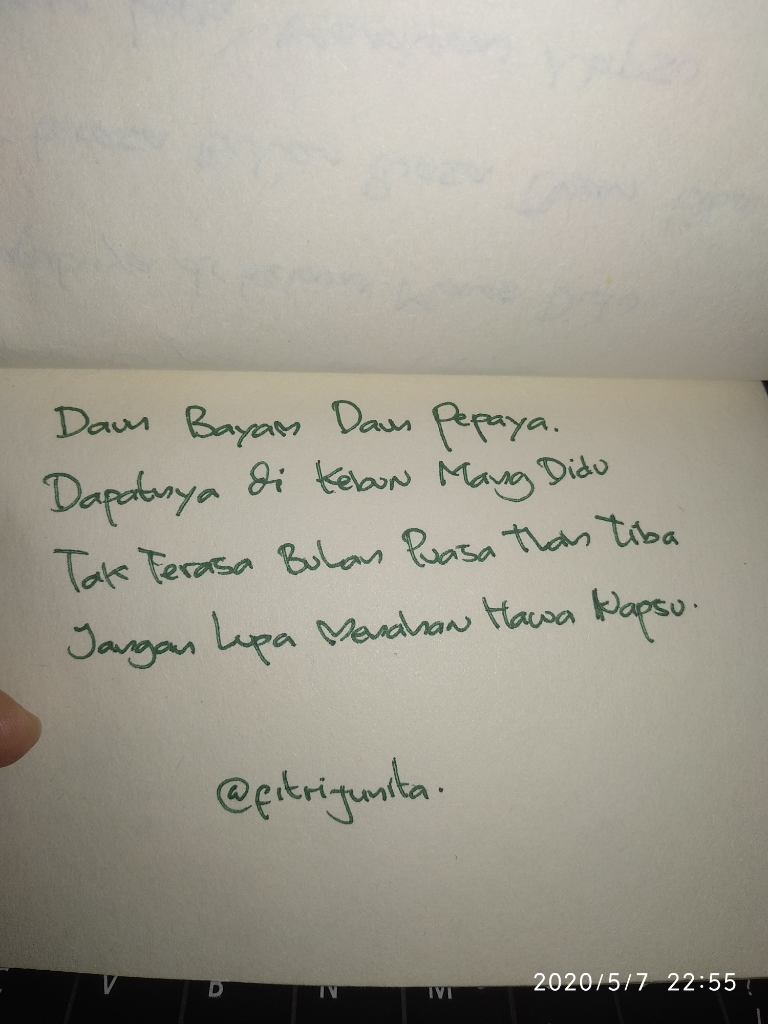 Daun Bayam Daun Pepaya.
Dapatnya di Kebun Mang Didu
Tak Terasa Bulan Puasa tlah Tiba
Jangan Lupa Menahan Hawa Napsu.
@fitrijunita.
V B N M
2020/5/7 22:55